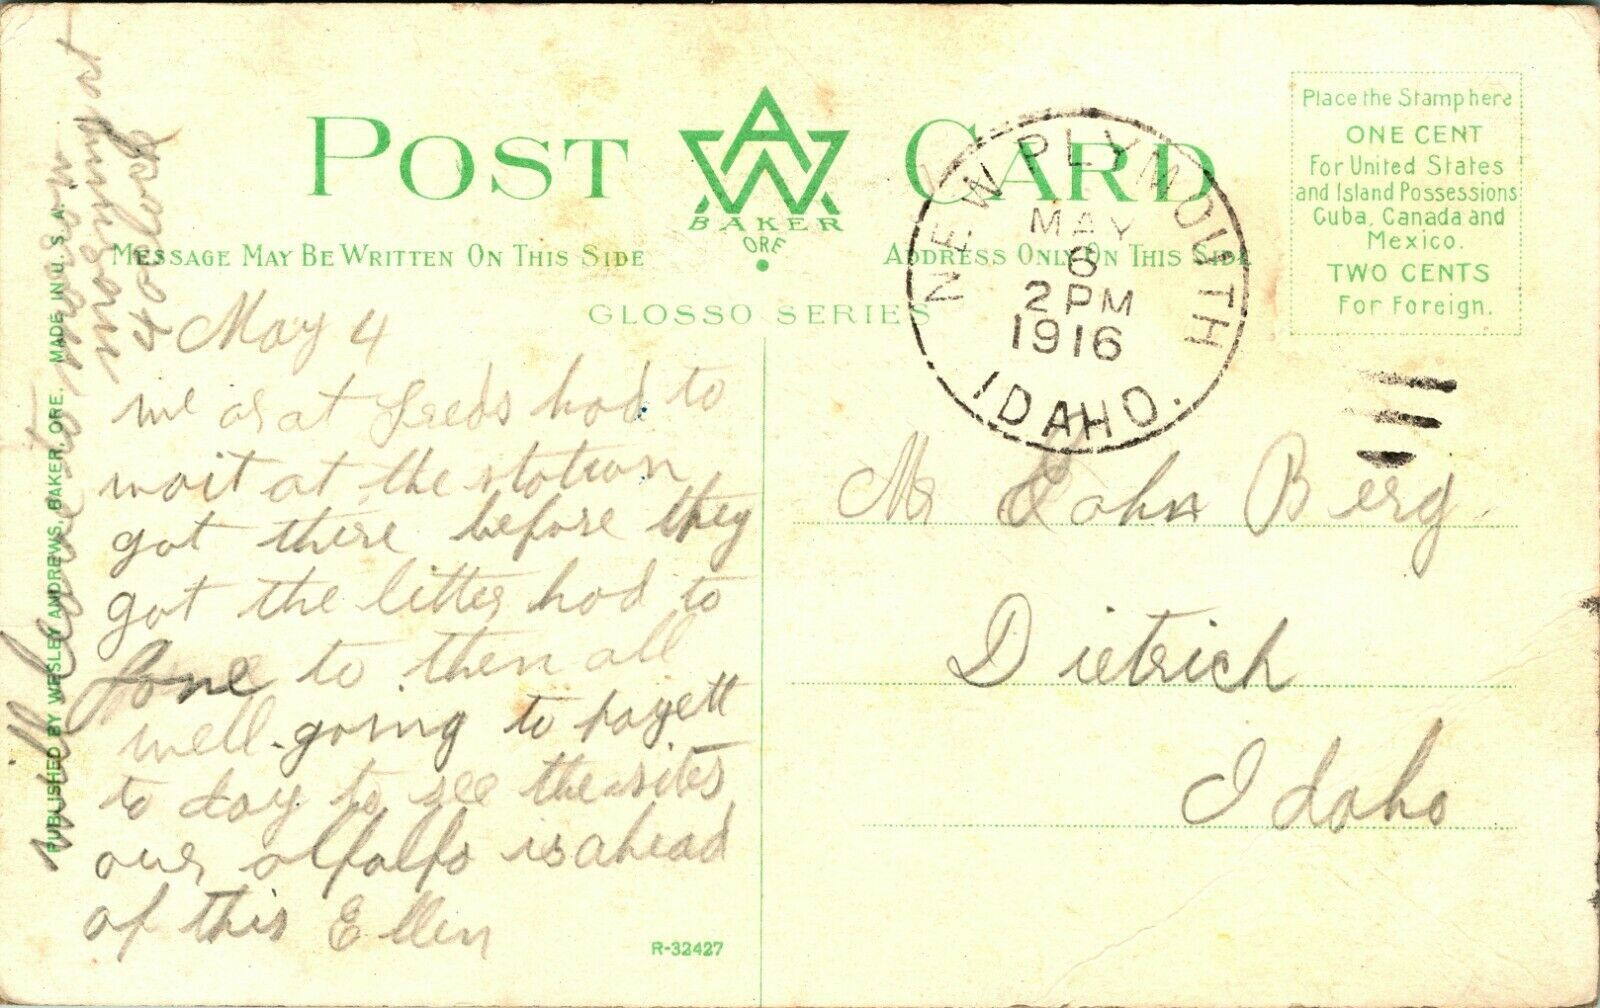 POST CARD
AW
BAKER
ORE
MESSAGE MAY BE WRITTEN ON THIS SIDE
ADDRESS ONLY ON THIS SIDE
GLOSSO SERIES
Place the Stamp here
ONE CENT
For United States
and Island Possessions
Cuba, Canada and
Mexico.
TWO CENTS
For Foreign.
NEW PLYMOUTH
MAY
6
2 PM
1916
IDAHO.
May 4
we ar at Freds had to
wait at the station
got there before they
got the litter had to
fone to them all
well going to payett
to day to see the sites
our alfalfa is ahead
of this Ellen
will leave to morrow
morning at
4 oclock
Mr John Berg
Dietrich
Idaho
PUBLISHED BY WESLEY ANDREWS, BAKER, ORE. MADE IN U. S. A.
R-32427